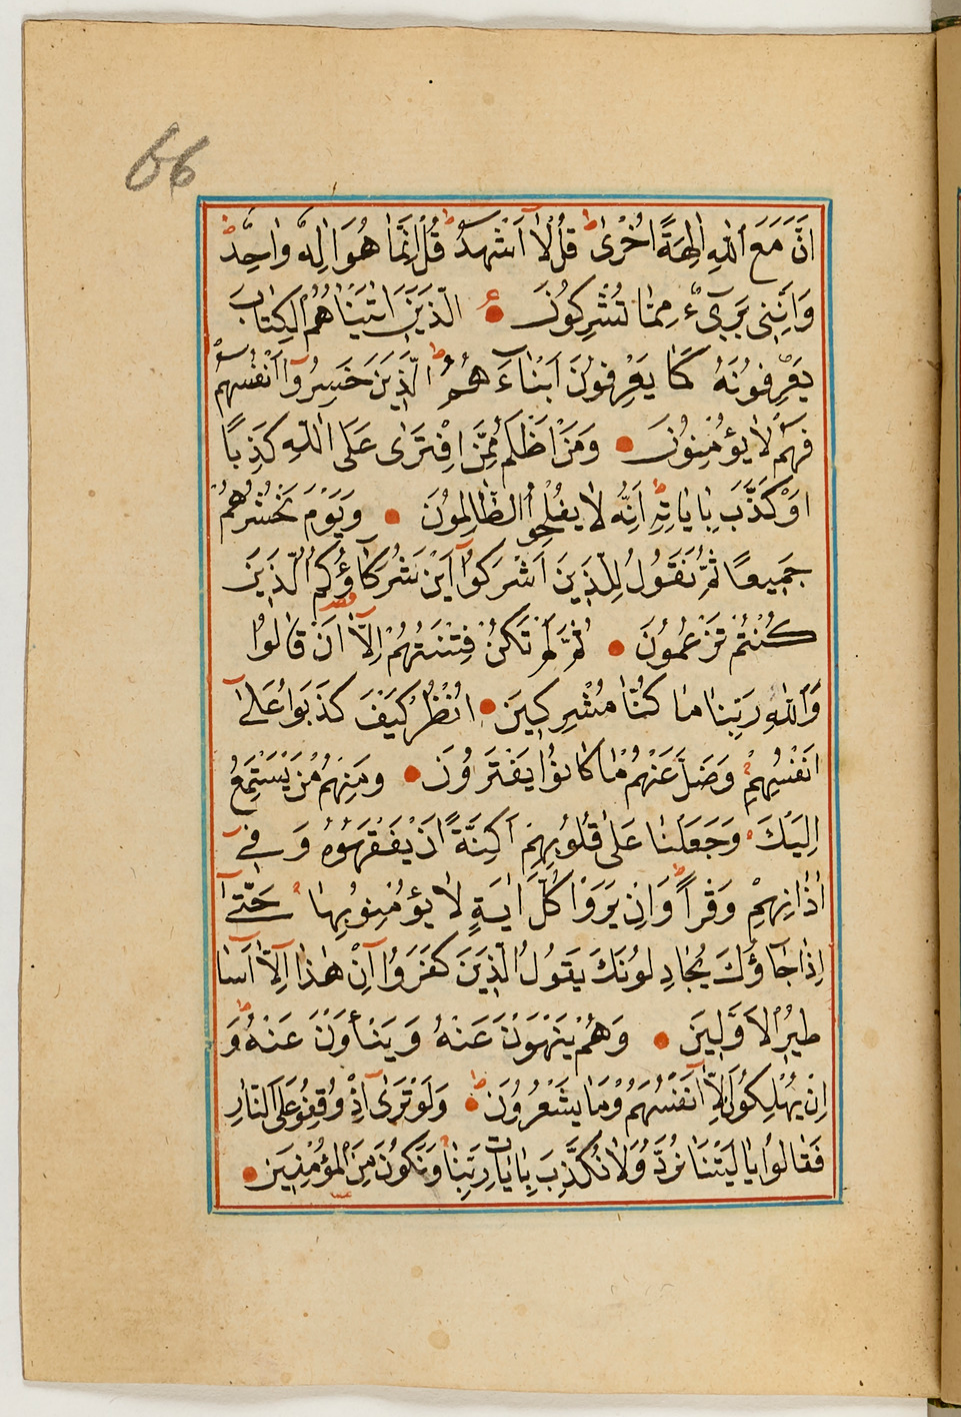 66
اَنَّ مَعَ اللّٰهِ اٰلِهَةً اُخْرٰى ط قُلْ لَا اَشْهَدُ ط قُلْ اِنَّمَا هُوَ اِلٰهٌ وَاحِدٌ ط
وَاِنَّنِى بَرِىٓءٌ مِمَّا تُشْرِكُونَ ء الَّذِينَ اٰتَيْنَاهُمُ الْكِتَابَ
يَعْرِفُونَهُ كَمَا يَعْرِفُونَ اَبْنَاءَهُمُ ط الَّذِينَ خَسِرُوا اَنْفُسَهُمْ
فَهُمْ لَا يُؤْمِنُونَ وَمَنْ اَظْلَمُ مِمَّنِ افْتَرٰى عَلَى اللّٰهِ كَذِبًا
اَوْ كَذَّبَ بِاٰيَاتِهِ ط اِنَّهُ لَا يُفْلِحُ الظَّالِمُونَ وَيَوْمَ نَحْشُرُهُمْ
جَمِيعًا ثُمَّ نَقُولُ لِلَّذِينَ اَشْرَكُوا اَيْنَ شُرَكَاؤُكُمُ الَّذِينَ
كُنْتُمْ تَزْعُمُونَ ثُمَّ لَمْ تَكُنْ فِتْنَتُهُمْ اِلَّا اَنْ قَالُوا
وَاللّٰهِ رَبِّنَا مَا كُنَّا مُشْرِكِينَ اُنْظُرْ كَيْفَ كَذَبُوا عَلٰى
اَنْفُسِهِمْ وَضَلَّ عَنْهُمْ مَا كَانُوا يَفْتَرُونَ وَمِنْهُمْ مَنْ يَسْتَمِعُ
اِلَيْكَ وَجَعَلْنَا عَلٰى قُلُوبِهِمْ اَكِنَّةً اَنْ يَفْقَهُوهُ وَفِى
اٰذَانِهِمْ وَقْرًا ط وَاِنْ يَرَوْا كُلَّ اٰيَةٍ لَا يُؤْمِنُوا بِهَا حَتّٰى
اِذَا جَاؤُكَ يُجَادِلُونَكَ يَقُولُ الَّذِينَ كَفَرُوا اِنْ هٰذَا اِلَّا اَسَا
طِيرُ الْاَوَّلِينَ وَهُمْ يَنْهَوْنَ عَنْهُ وَيَنْأَوْنَ عَنْهُ ط وَ
اِنْ يُهْلِكُونَ اِلَّا اَنْفُسَهُمْ وَمَا يَشْعُرُونَ ط وَلَوْ تَرٰى اِذْ وُقِفُوا عَلَى النَّارِ
فَقَالُوا يَا لَيْتَنَا نُرَدُّ وَلَا نُكَذِّبَ بِاٰيَاتِ رَبِّنَا وَنَكُونَ مِنَ الْمُؤْمِنِينَ